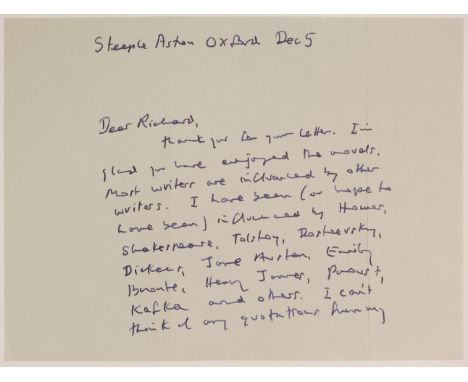 Steeple Aston Oxford Dec 5
Dear Richard,
thank you for your letter. I'm
glad you have enjoyed the novels.
Most writers are influenced by other
writers. I have been (or hope to
have been) influenced by Homer,
Shakespeare, Tolstoy, Dostoevsky,
Dickens, Jane Austen, Emily
Bronte, Henry James, Proust,
Kafka and others. I can't
think of any quotations